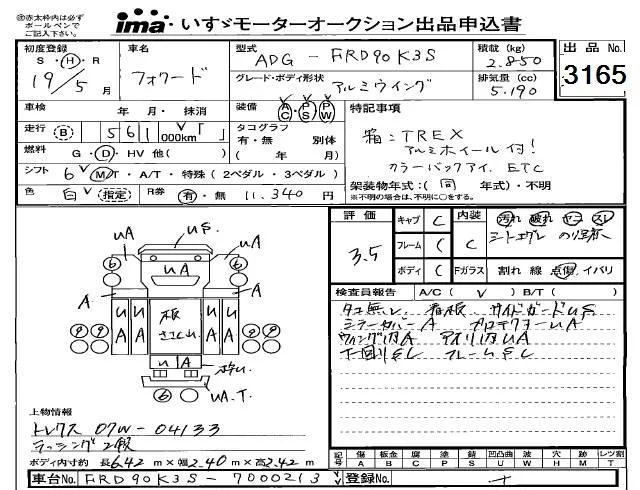 ㊟赤太枠内は必ず
ボールペンで
ご記入下さい。
ima・いすゞモーターオークション出品申込書
初度登録 S・H・R 19/5月
車名 フォワード
型式 ADG-FRD90K3S
グレード・ボディ形状 アルミウイング
積載(kg) 2.850
排気量(cc) 5.190
出品No. 3165
車検 年 月・抹消
走行 (B) 561,000km
燃料 G・D・HV 他( )
シフト 6 V M T・A/T・特殊(2ペダル・3ペダル)
色 白 V (指定) R券 有・無 11.340円
装備 AC・PS・PW
タコグラフ
有・無 別体
( 年 月)
特記事項
箱:TREX
アルミホイール付!
カラーバックアイ. ETC
架装物年式:(同 年式)・不明
※不明の場合は、不明に○をする。
評価 3.5
キャブ C 内装 C 汚れ 破れ ヤニ スレ
フレーム C
ボディ C Fガラス 割れ 線 点傷 イバリ
検査員報告 A/C( V ) B/T( )
タコ無し 看板 サイドガードUS
ミラーカバーA プロテクターUA
ウィング内A アオリ内UA
下回りSC フレームSC
UA US. A
6 UA 6
A A
9 9 U A U A 板 U A U A 9 9
U A
6 UA.T.
上物情報
トレクス 07W-04133
ラッシング2段
ボディ内寸約 長6.42m×幅2.40m×高2.42m
記号 傷 板金 腐 塗 錆 凹凸曲 波 穴 跡 レツ割
A B C P S U W H M T
車台No. FRD90K3S-7000213 登録No.